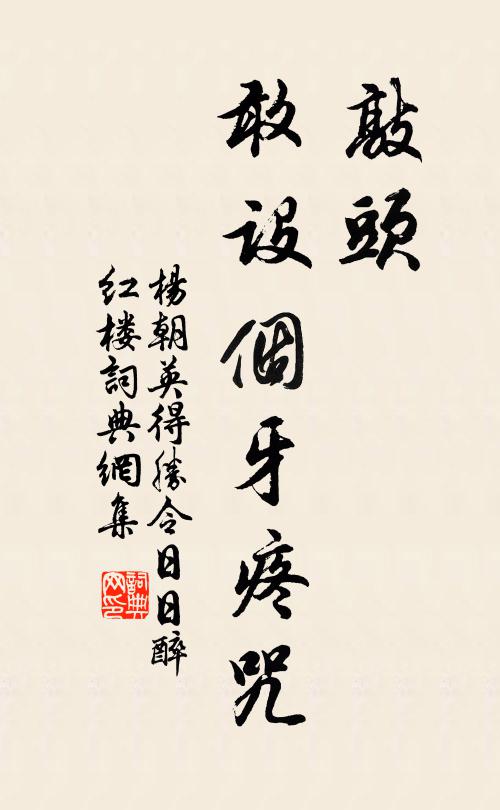 敲頭
敢设個牙疼咒
楊朝英得勝令日日醉
红楼詞典網集
詞典
网印